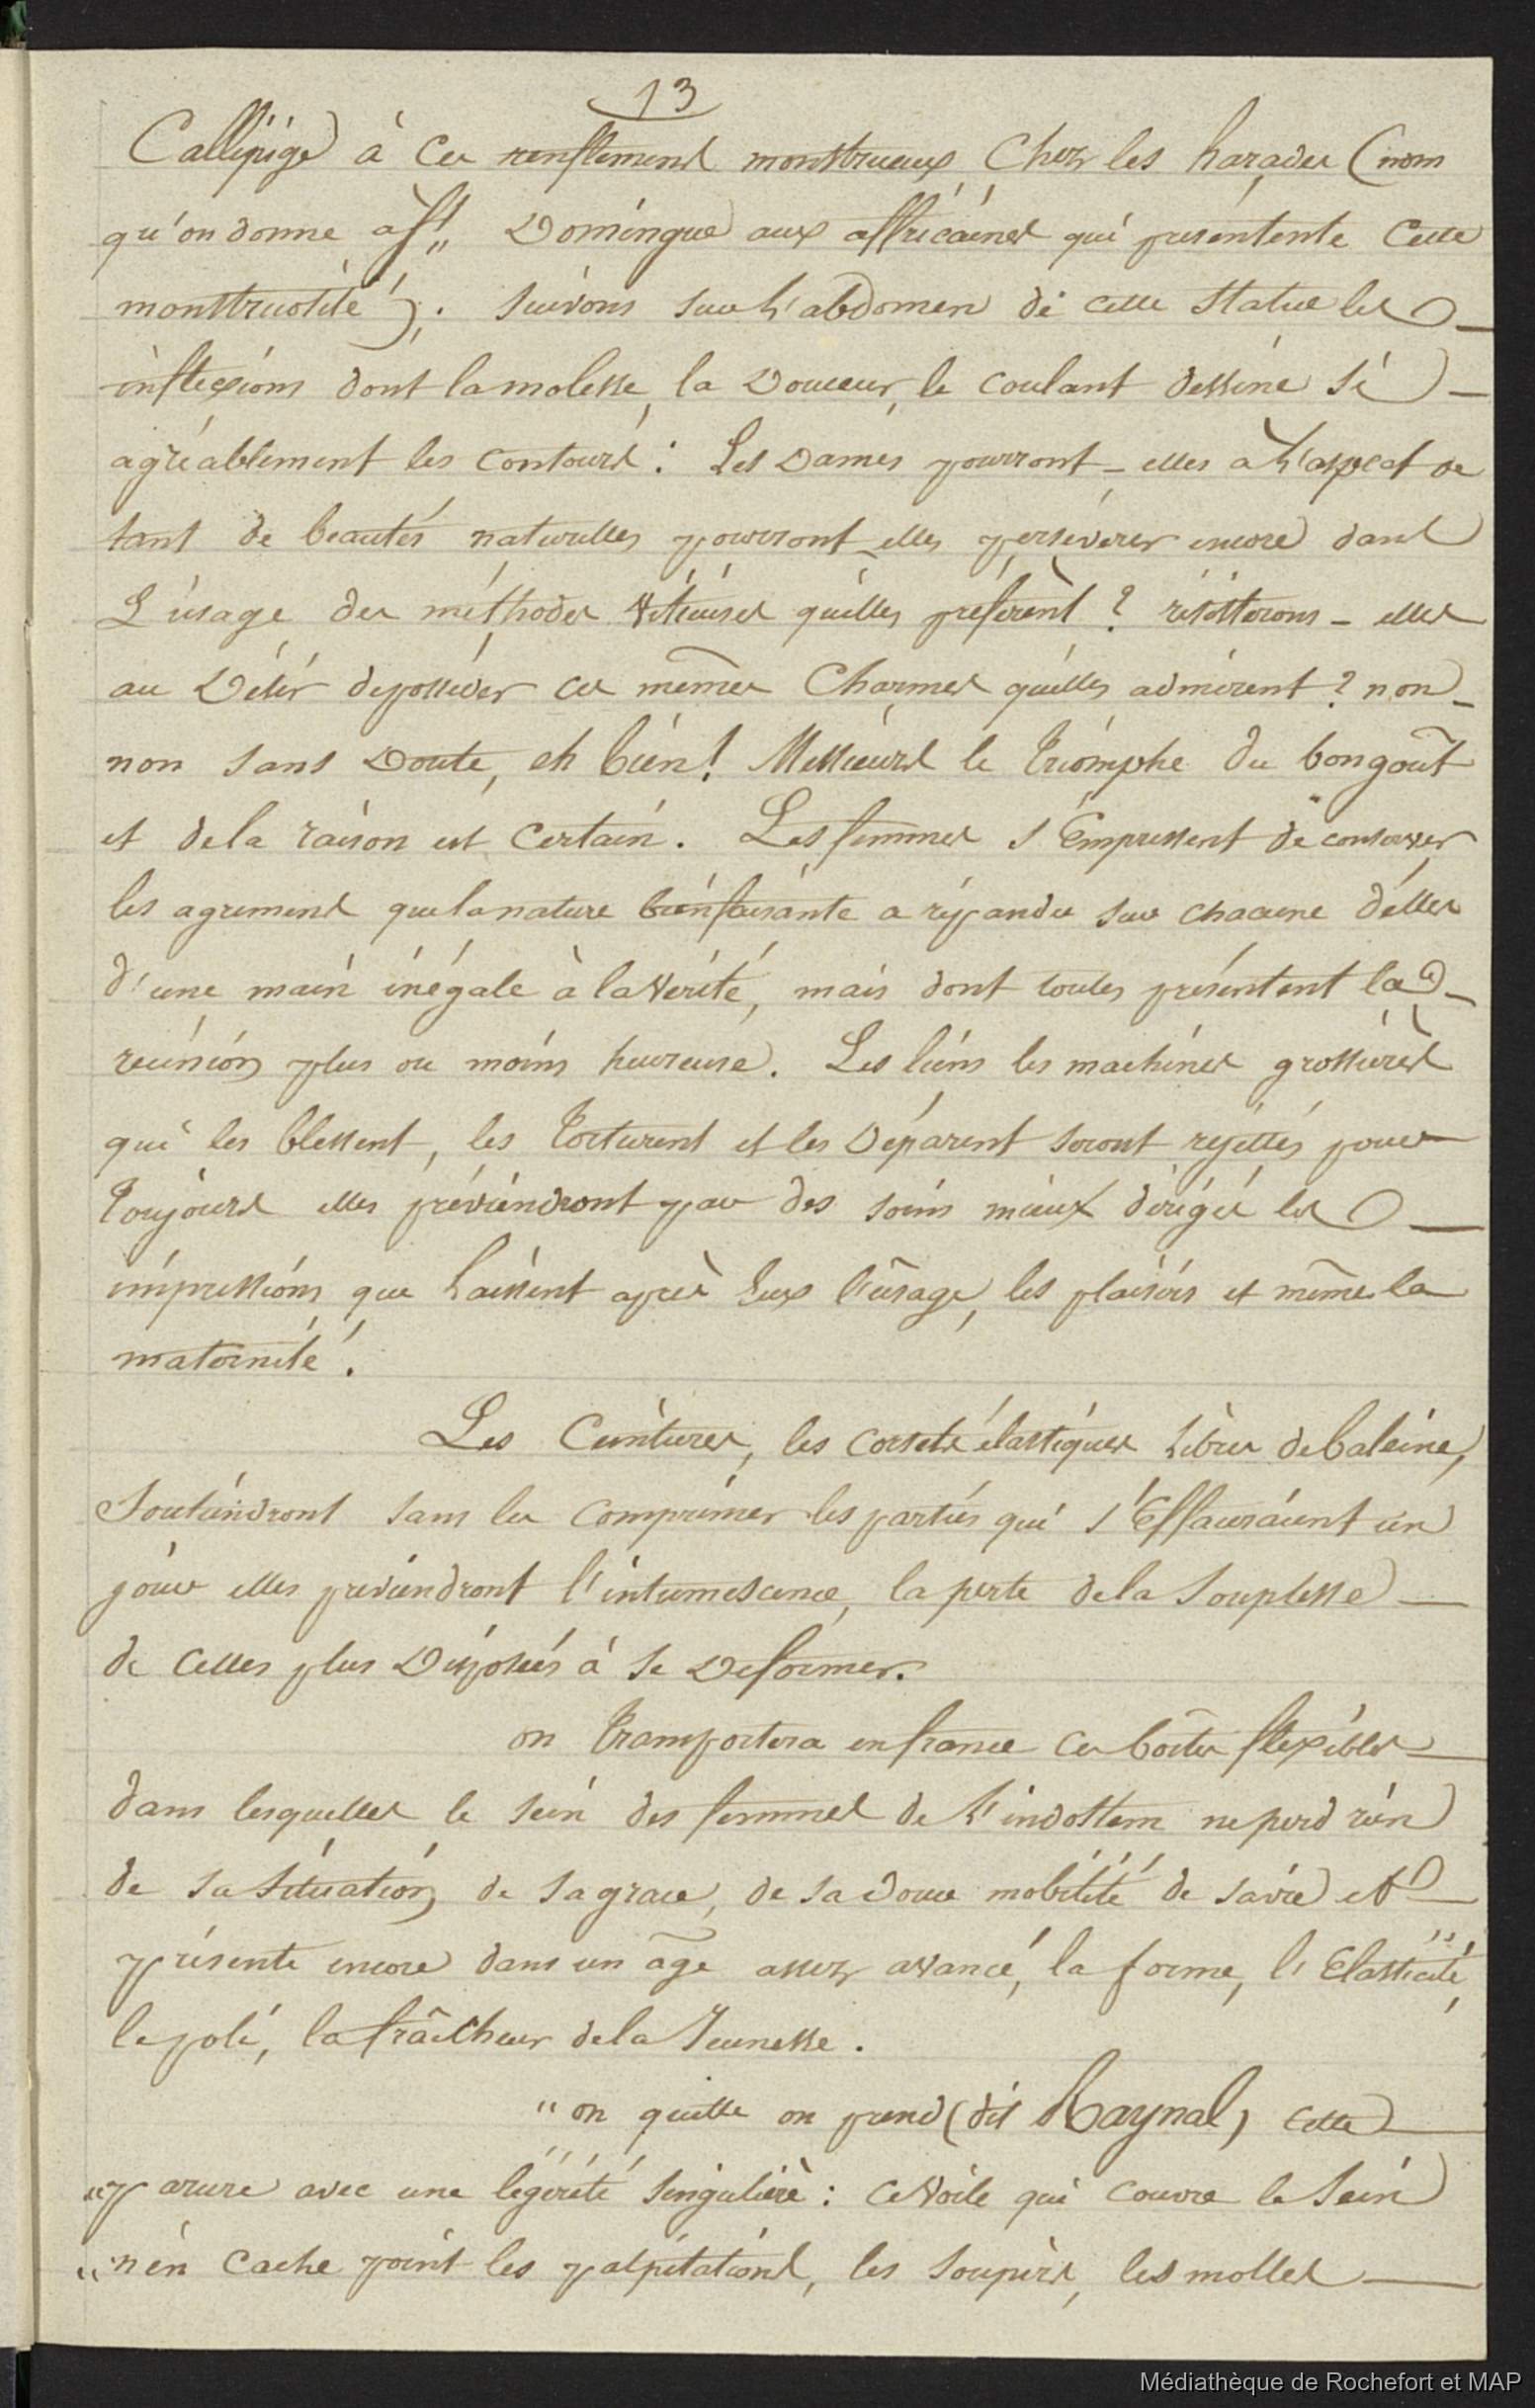 13
Callipige à ces renflement monttrueux Chez les harades (nom
qu'on donne à St,, Domingue aux affricaines qui présentente Cette
monttruosité). Suivons sur l'abdomen de cette Statue les
inflexions dont la molesse, la Douceur, le coulant dessine si
agréablement les contours : Les Dames pourront-elles à l'aspect de
tant de beautés naturelles pourront-elles persévérer encore dans
L'usage des méthodes vitieuses qu'elles préferènt ? résistterons-elles
au Désir deposséder ces mêmes Charmes qu'elles admirent ? non
non sans Doute, eh bien ! Messieurs le triomphe du bon goût
et dela raison est certain. Les femmes s'Empressent de conserver
les agrement que la nature bienfaisante a répandu sur chacune d'elles
d'une main inégale à la vérité, mais dont toutes présentent la
reunion plus ou moins heureuse. Les liens les machines grossières
qui les blessent, les torturent et les Déparent seront rejettés pour
toujours elles préviendront par des soins mieux dirigés les
impressions que laissent après Eux l'usage, les plaisirs et même la
maternité.
Les Ceintures, les corsets élastiques libres de baleine,
Soutiendront sans les comprimer les parties qui s'Effaceraient un
jour elles previendront l'intumescence, la perte dela Souplesse
de celles plus Disposées à se Déformer.
on transportera en france ces boîtes flexibles
dans lesquelles le sein des femmes de l'indosttem ne perd rien
de sa Situation, de sa grace, de sa Douce mobilité de sa vie et
présente encore dans un âge assez avancé, la forme, l'Elasticité,
le poli, la fraîcheur dela Jeunesse.
"on quitte on prend (dit Raynal) cette
"parure avec une légéreté singulière : Ce voile qui couvre le Sein
"n'en cache point les palpitations, les soupirs, les molles
Médiathèque de Rochefort et MAP